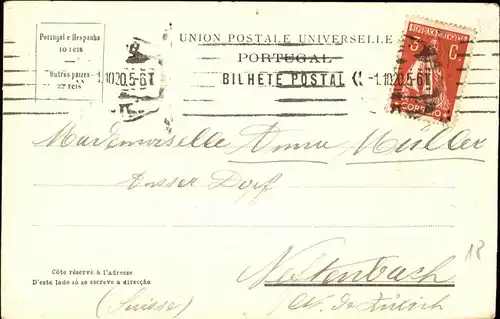 Portugal e Hespanha
10 reis
Outros paizes
UNION POSTALE UNIVERSELLE
PORTUGAL
BILHETE POSTAL
1.10.20.5-6T
-1.10.20.5-6T
REPUBLICA PORTUGUESA
3 C.
Mademoiselle Anna Müller
Ausser Dorf
Neftenbach
Ct. de Zürich
(Suisse)
18
Côte réservé à l'adresse
D'este lado só se escreve a direcção